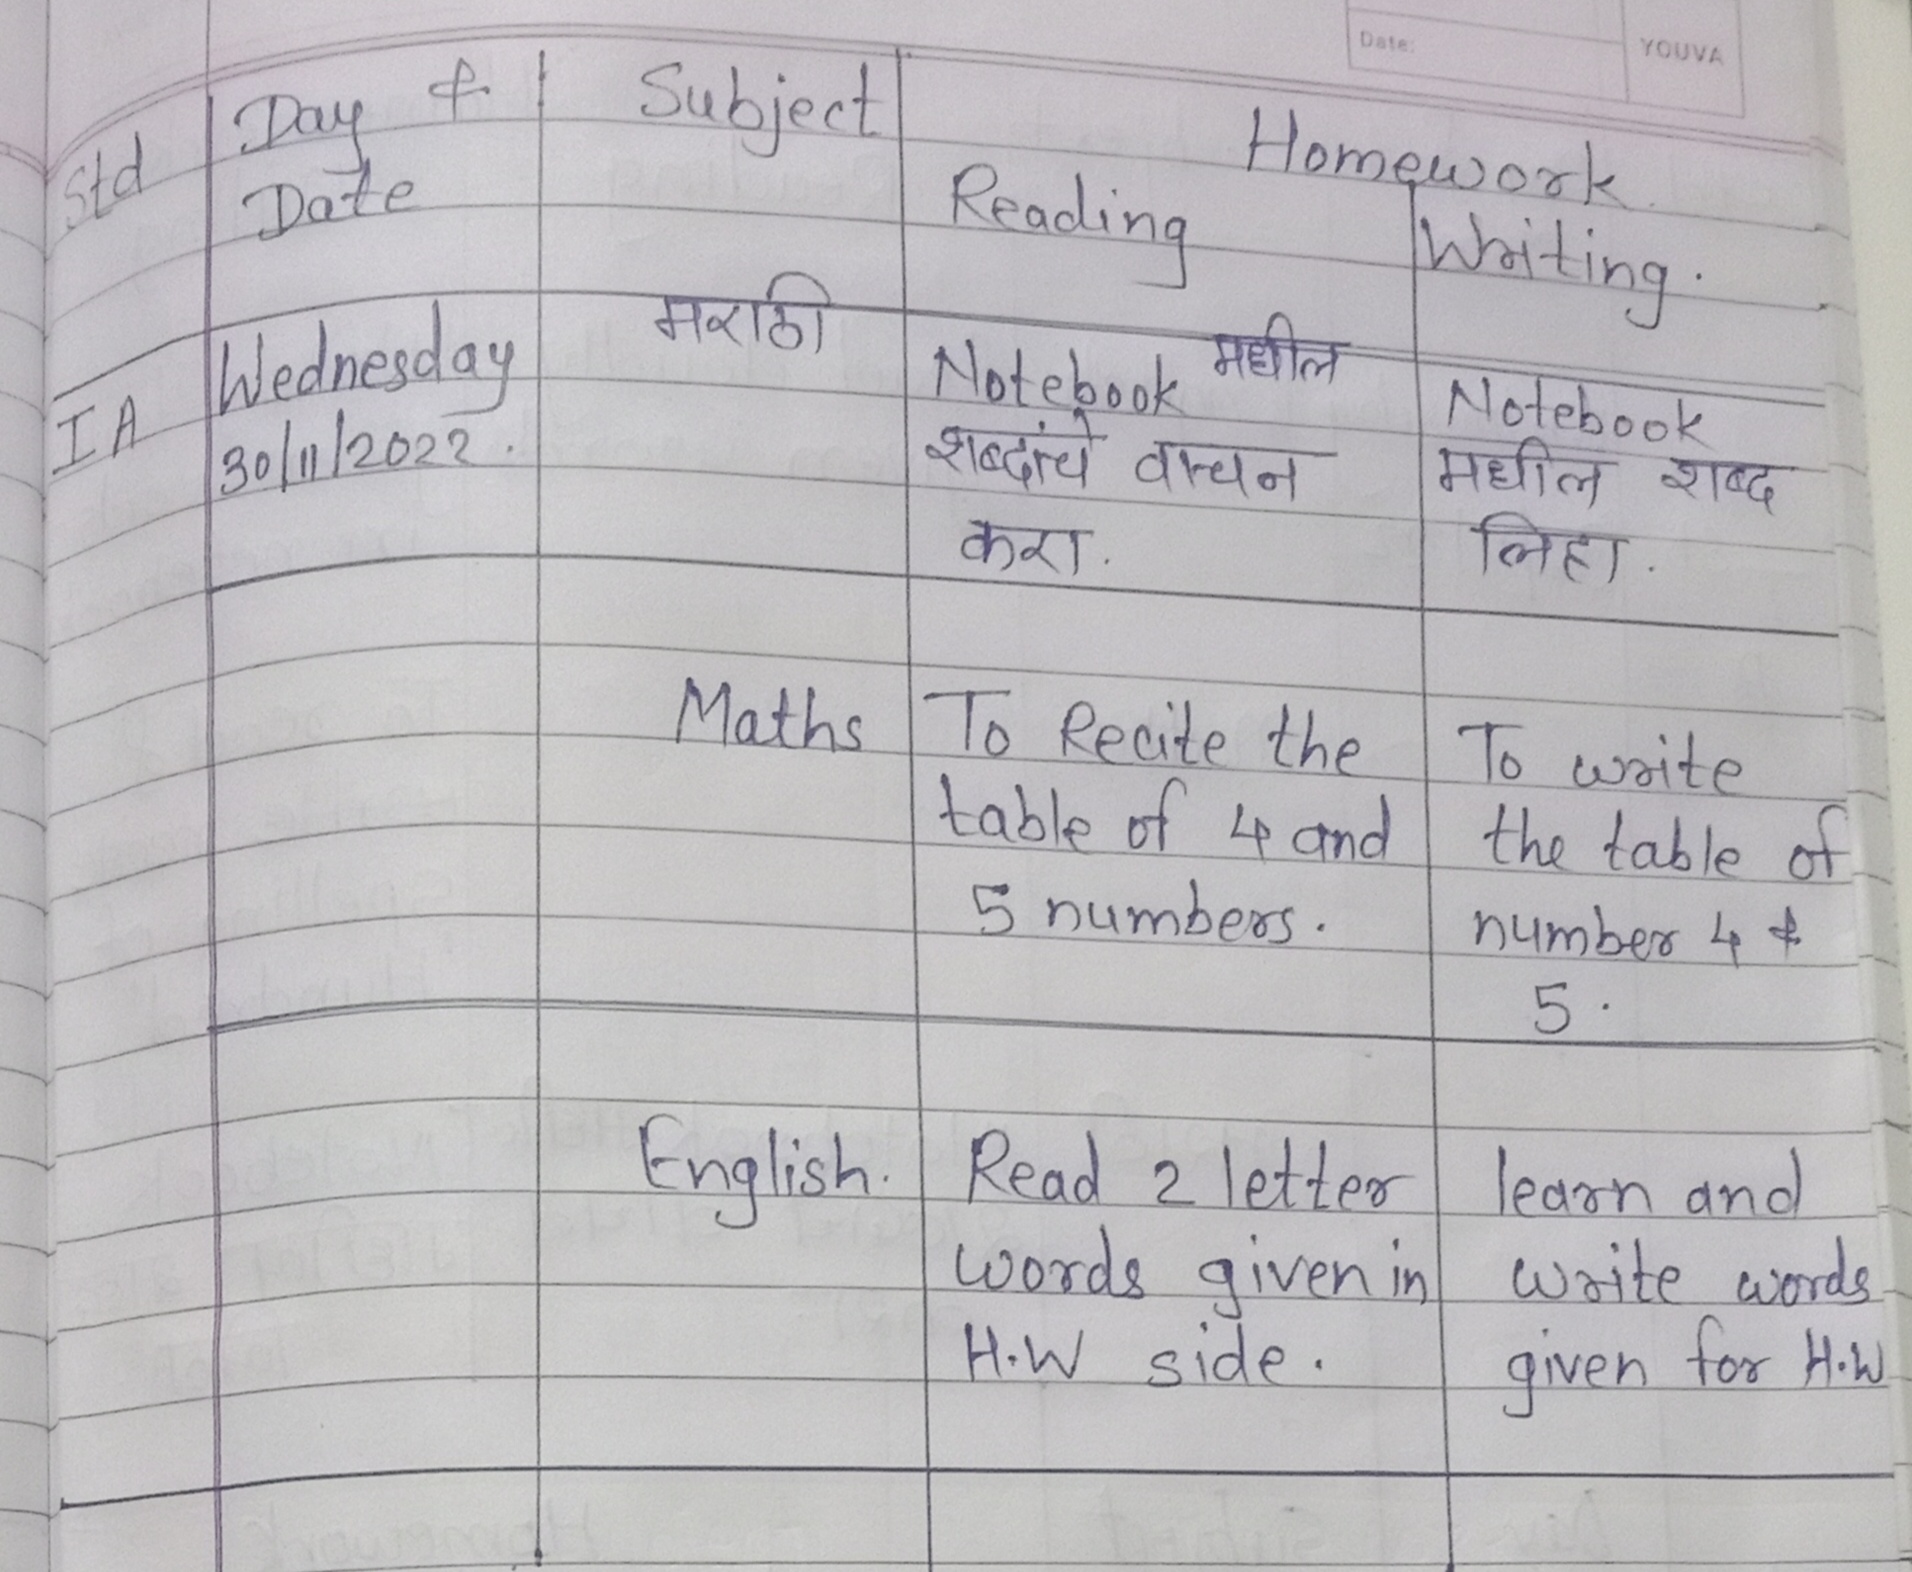 Date:
YOUVA
Std
Day &
Date
Subject
Homework
Reading
Writing.
I A
Wednesday
30/11/2022.
मराठी
Notebook मधील
शब्दांचे वाचन
करा.
Notebook
मधील शब्द
लिहा.
Maths
To Recite the
table of 4 and
5 numbers.
To write
the table of
number 4 &
5.
English.
Read 2 letter
words given in
H.W side.
learn and
write words
given for H.W